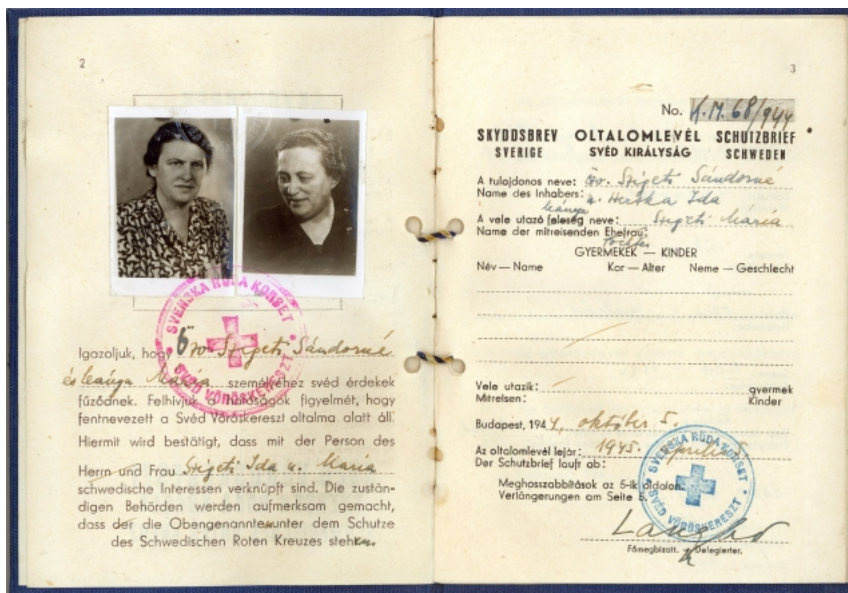 2
SVENSKA RÖDA KORSET
SVÉD VÖRÖSKERESZT
Igazoljuk, hogy öv. Szigeti Sándorné
és leánya Mária személyéhez svéd érdekek
fűződnek. Felhívjuk a hatóságok figyelmét, hogy
fentnevezett a Svéd Vöröskereszt oltalma alatt áll.
Hiermit wird bestätigt, dass mit der Person des
Herrn und Frau Szigeti Ida u. Maria
schwedische Interessen verknüpft sind. Die zustän-
digen Behörden werden aufmerksam gemacht,
dass der die Obengenannten unter dem Schutze
des Schwedischen Roten Kreuzes stehen.
3
No. K.M. 68/944
SKYDDSBREV OLTALOMLEVÉL SCHUTZBRIEF
SVERIGE SVÉD KIRÁLYSÁG SCHWEDEN
A tulajdonos neve: öv. Szigeti Sándorné
Name des Inhabers: Herska Ida
leánya
A vele utazó feleség neve: Szigeti Mária
Name der mitreisenden Ehefrau:
Tochter
GYERMEKEK — KINDER
Név — Name Kor — Alter Neme — Geschlecht
Vele utazik: gyermek
Mitreisen: Kinder
Budapest, 1944, október 5.
Az oltalomlevél lejár: 1945. április 5.
Der Schutzbrief lauft ab:
Meghosszabbítások az 5-ik oldalon.
Verlängerungen am Seite 5.
SVENSKA RÖDA KORSET
SVÉD VÖRÖSKERESZT
Főmegbízott. Delegierter.